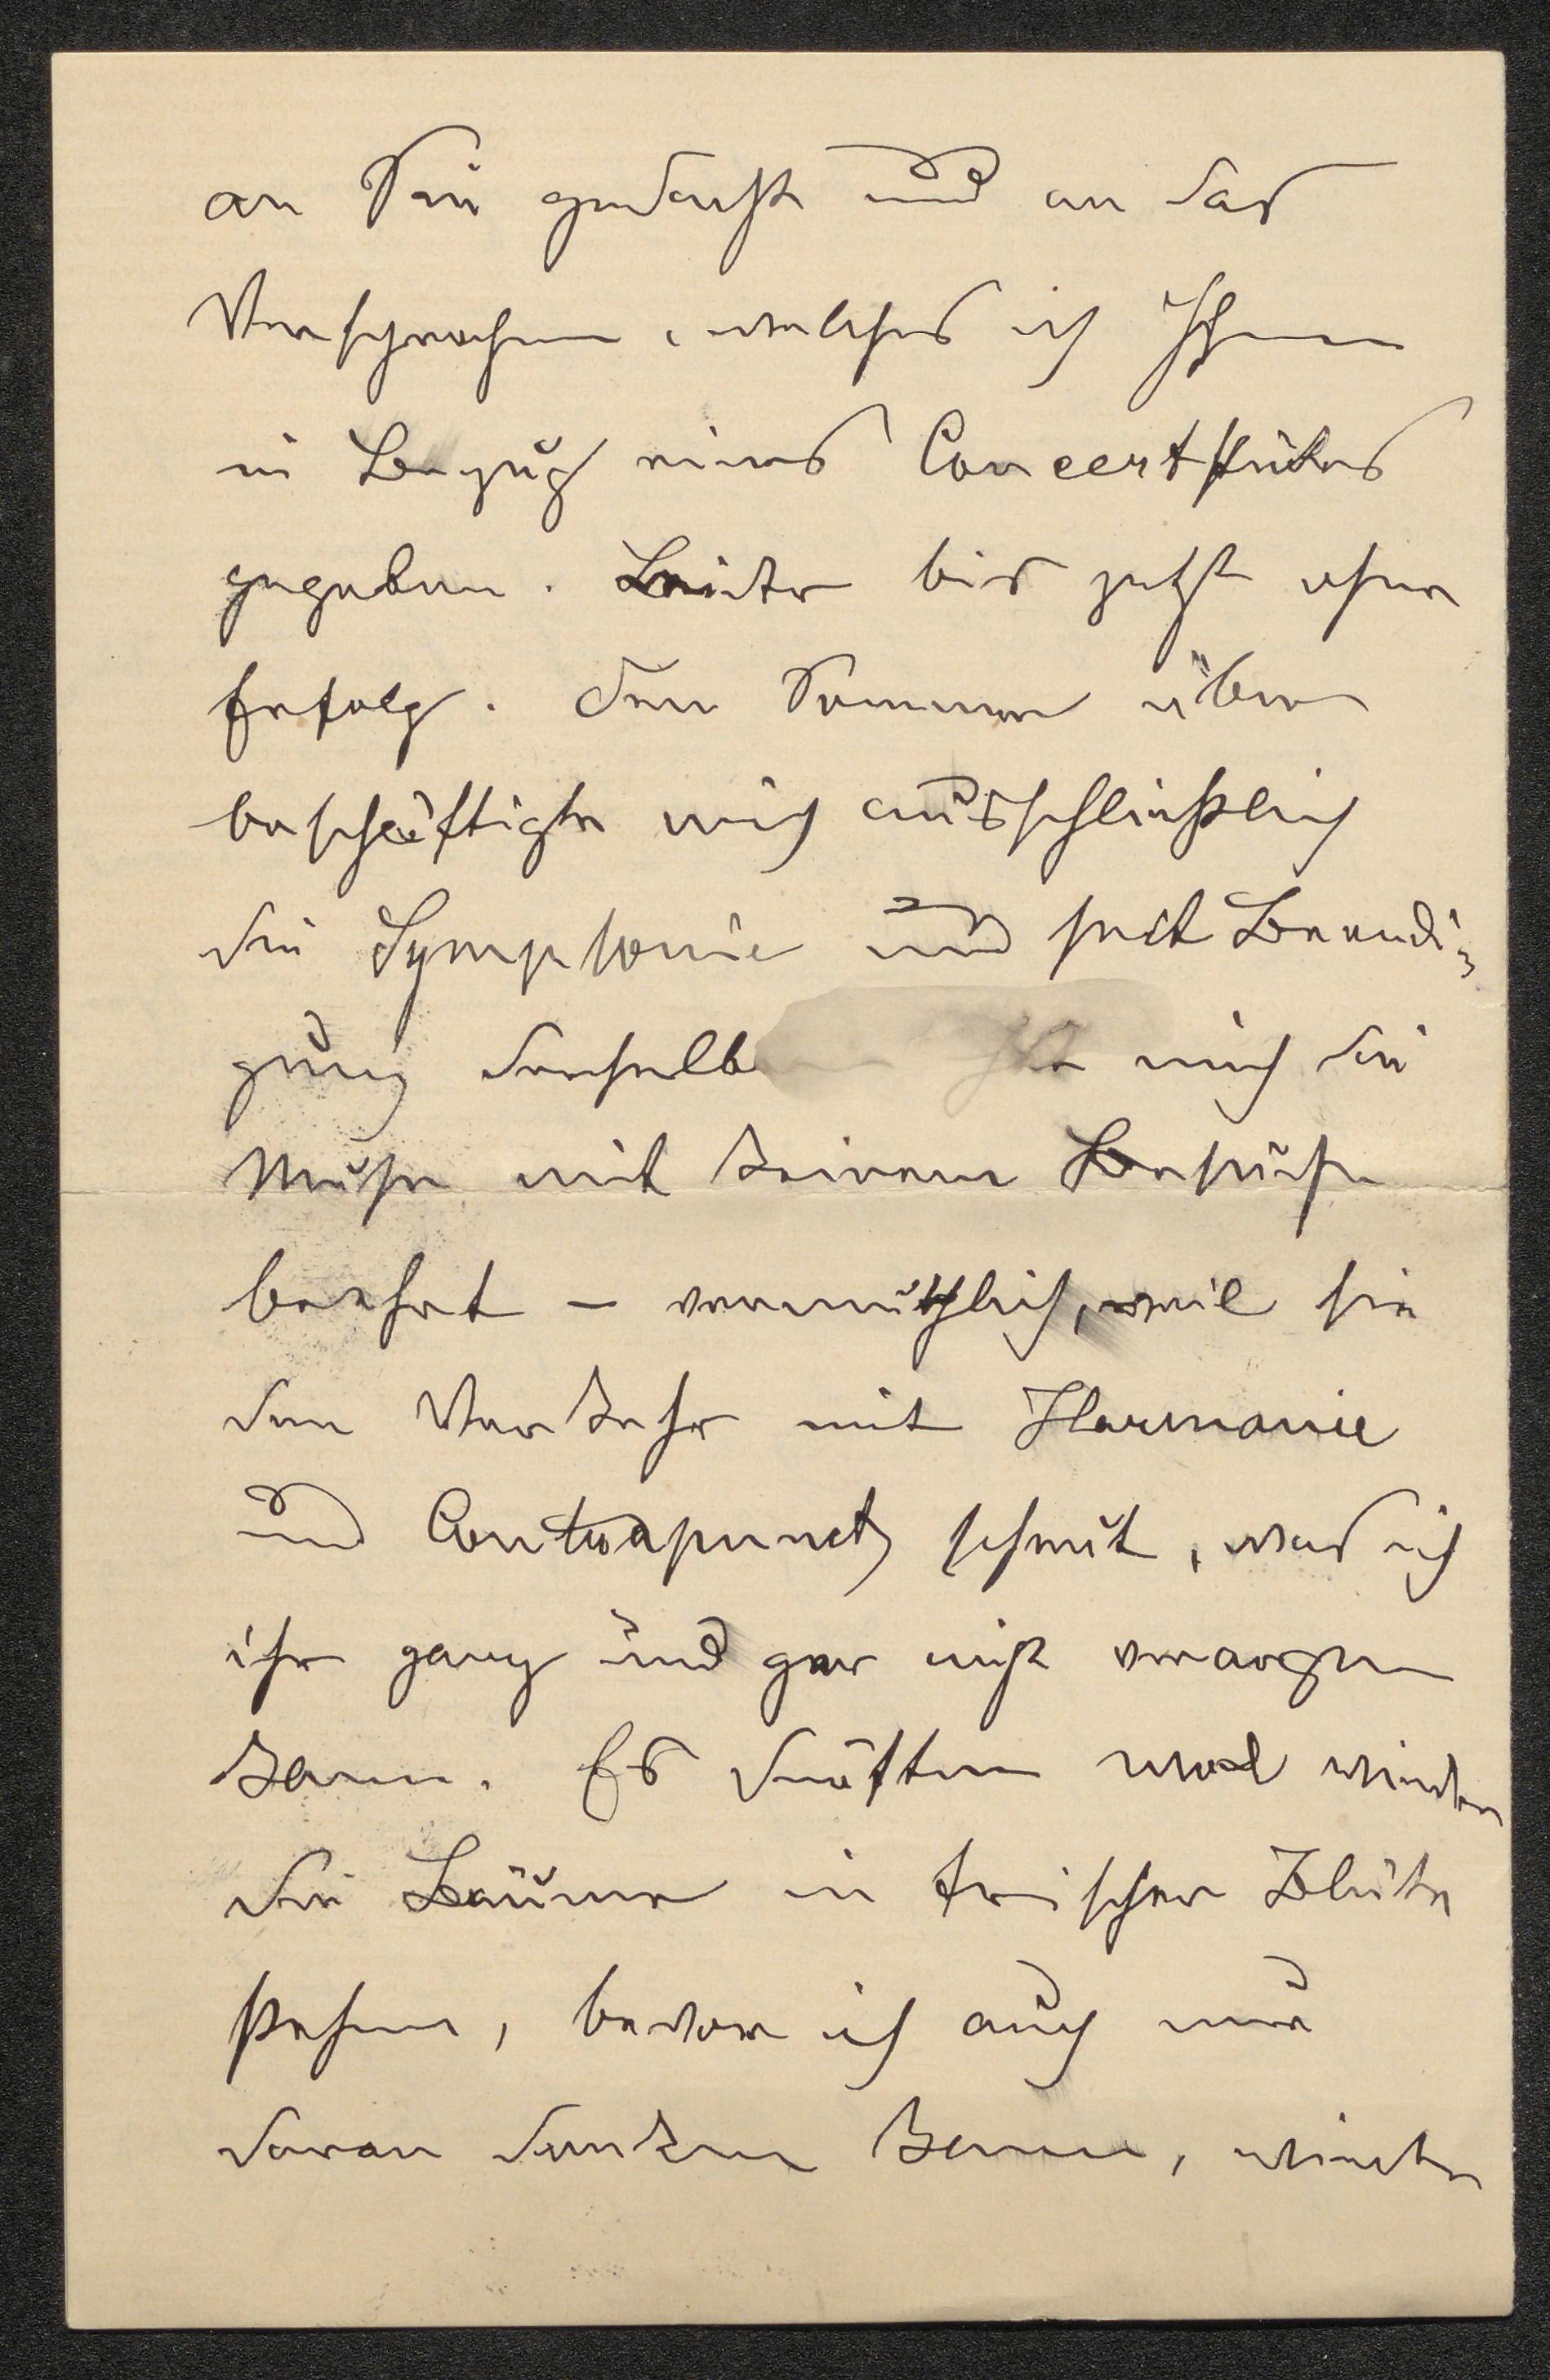 an Sie gedacht und an das
Versprechen, welches ich Ihnen
in Bezug eines Concertstückes
gegeben. Leider bis jetzt ohne
Erfolg. Den Sommer über
beschäftigte mich ausschließlich
die Symphonie und seit Beendi-
gung derselben hat mich die
Muse mit keinem Besuche
beehrt – vermuthlich, weil sie
den Verkehr mit Harmonie
und Contrapunct scheut, was ich
ihr ganz und gar nicht verargen
kann. Es dürften wol wieder
die Bäume in frischer Blüte
stehen, bevor ich auch nur
daran denken kann, wieder